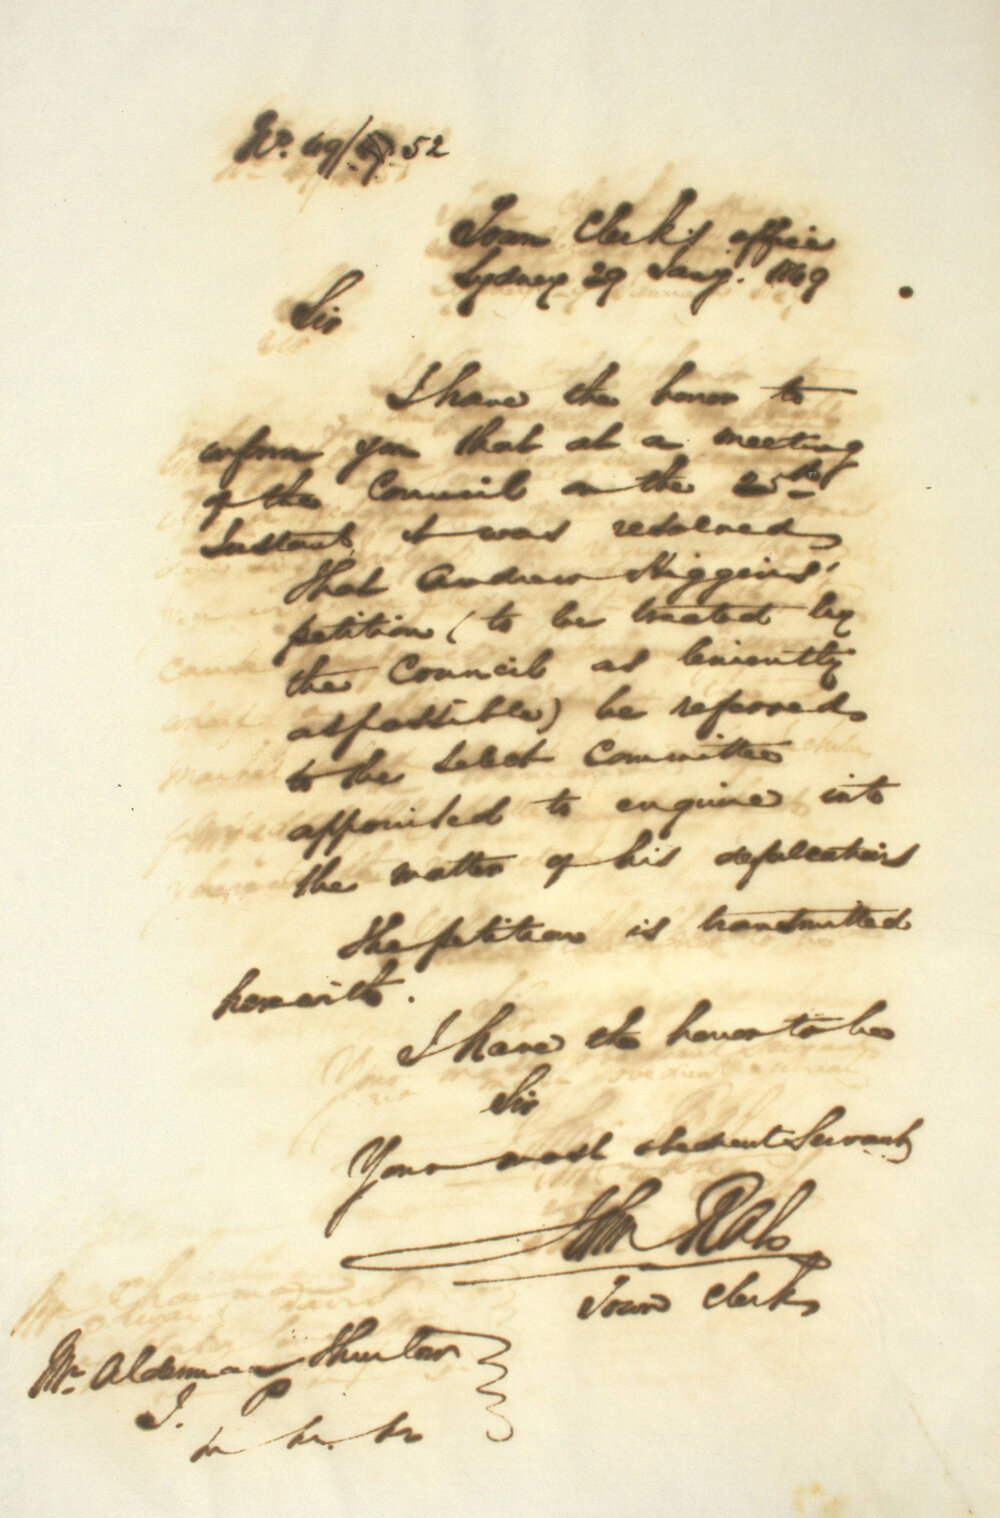 No. 49/ 52
Town Clerk's office
Sydney 29 Jany. 1869
Sir
I have the honor to
inform you that at a meeting
of the Council on the 25th
Instant, it was resolved,
That Andrew Higgins'
petition (to be treated by
the Council as leniently
as possible) be referred
to the Select Committee
appointed to enquire into
the matter of his defalcations
The petition is transmitted
herewith.
I have the honor to be
Sir
Your most obedient Servant
John Rae
Town Clerk
Mr. Alderman
J. P.